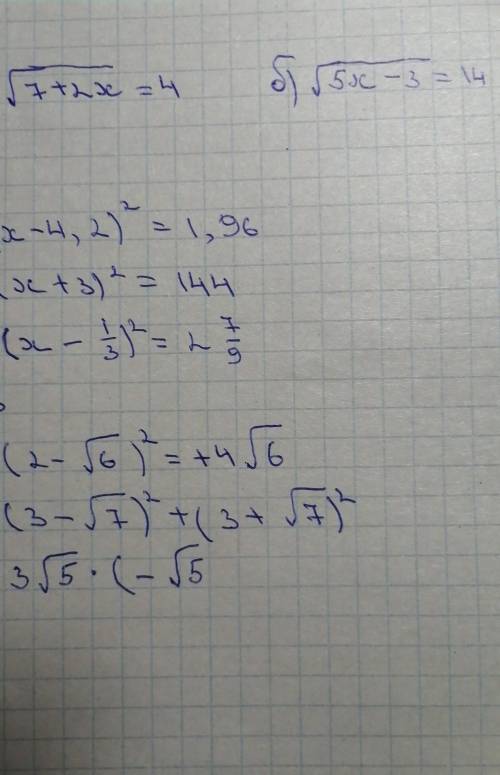 √(7+2x) = 4 б) √(5x-3) = 14
x-4,2)² = 1,96
(x+3)² = 144
(x - 1/3)² = 2 7/9
(2-√6)² = +4√6
(3-√7)² + (3+√7)²
3√5 · (-√5